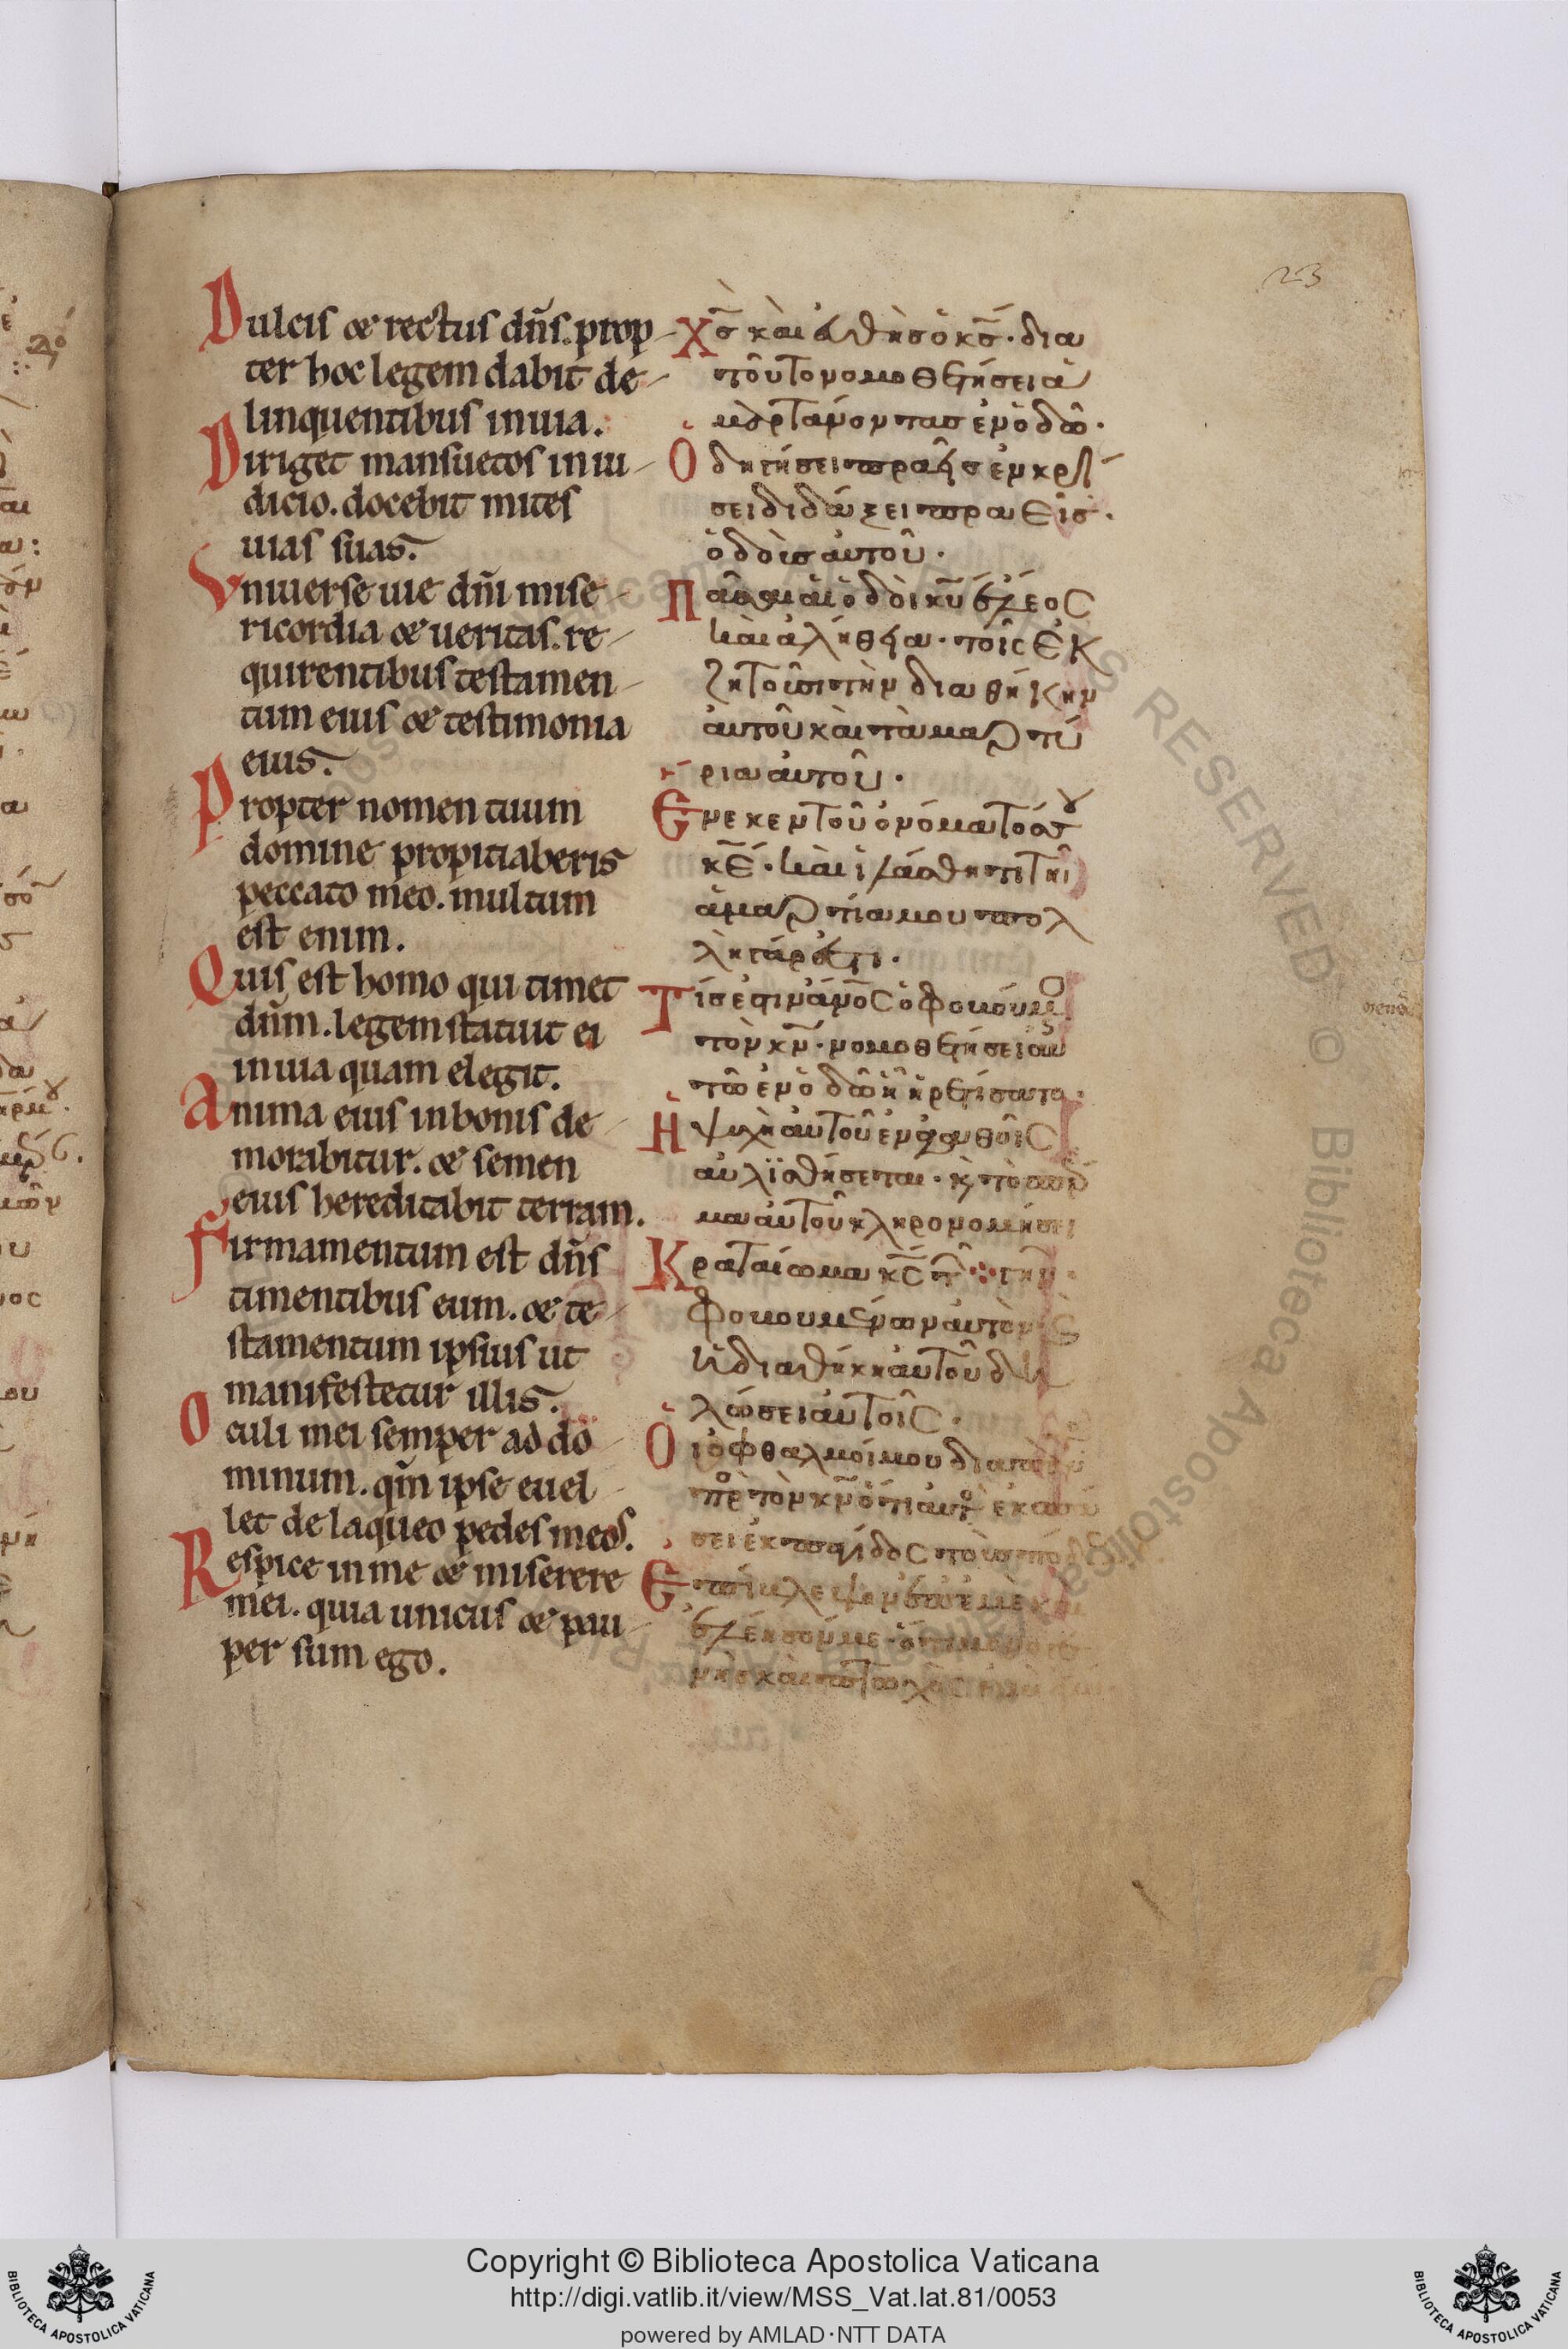 23
Dulcis & rectus dn̄s. prop-
ter hoc legem dabit de-
linquentibus in uia.
Diriget mansuetos in iu-
dicio. docebit mites
uias suas.
Vniuerse uie dn̄i mise-
ricordia & ueritas. re-
quirentibus testamen-
tum eius & testimonia
eius.
Propter nomen tuum
domine propitiaberis
peccato meo. multum
est enim.
Quis est homo qui timet
dn̄m. legem statuit ei
in uia quam elegit.
Anima eius in bonis de-
morabitur. & semen
eius hereditabit terram.
Firmamentum est dn̄s
timentibus eum. & te-
stamentum ipsius ut
manifestetur illis.
Oculi mei semper ad do-
minum. qm̄ ipse euel-
let de laqueo pedes meos.
Respice in me & miserere
mei. quia unicus & pau-
per sum ego.
Χς̄ καὶ ὀ κς̄· δια
τοῦτο νομοθετήσει ἁ
μαρτάνοντας ἐν ὁδῶ·
Ὁδηγήσει πραεῖς ἐν κρί
σει διδάξει πραεῖς·
ὁδοὺς αὐτοῦ·
Πᾶσαι αἱ ὁδοὶ κῡ ἔλεος
καὶ ἀλήθεια· τοῖς ἐκ
ζητοῦσι τὴν διαθήκην
αὐτοῦ καὶ τὰ μαρτύ
ρια αὐτοῦ·
Ἕνεκεν τοῦ ὀνόματός σου
κε̄· καὶ ἱλάσθητι τῆ
ἁμαρτία μου πολ
λὴ γάρ ἐστι·
Τίς ἐστιν ἄν̄ος ὁ φοβούμενος
τὸν κν̄· νομοθετήσει αὐ
τῶ ἐν ὁδῶ ἧ ἡρετίσατο·
Ἡ ψυχὴ αὐτοῦ ἐν ἀγαθοῖς
αὐλισθήσεται· κ τὸ σπέρ
μα αὐτοῦ κληρονομήσει
Κραταίωμα κς̄ τῶν
φοβουμένων αὐτὸν
ἡ διαθήκη αὐτοῦ δη
λώσει αὐτοῖς·
Οἱ ὀφθαλμοί μου διαπαντὸς
πρὸς τὸν κν̄ ὅτι αὐτὸς ἐκσπά
σει ἐκ παγίδος τοὺς
Ἐπίβλεψον ἐπ' ἐμὲ καὶ
ἐλέησόν με· ὅτι
καὶ πτωχὸς
Copyright © Biblioteca Apostolica Vaticana
http://digi.vatlib.it/view/MSS_Vat.lat.81/0053
powered by AMLAD·NTT DATA